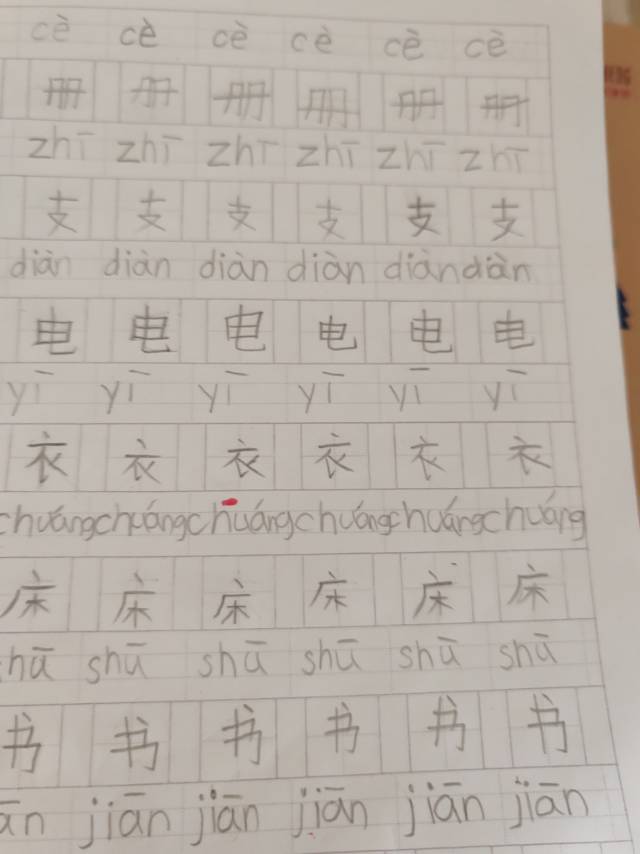 cè cè cè cè cè cè
册 册 册 册 册 册
zhī zhī zhī zhī zhī zhī
支 支 支 支 支 支
diàn diàn diàn diàn diàn diàn
电 电 电 电 电 电
yī yī yī yī yī yī
衣 衣 衣 衣 衣 衣
chuáng chuáng chuáng chuáng chuáng chuáng
床 床 床 床 床 床
hū shū shū shū shū shū
书 书 书 书 书 书
ān jiān jiān jiān jiān jiān